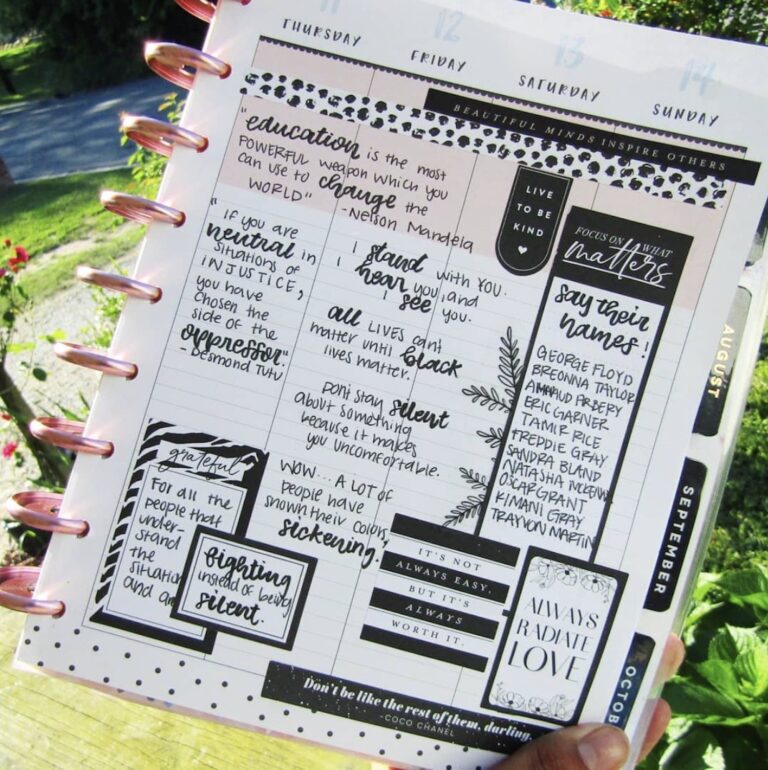 11
THURSDAY
12
FRIDAY
13
SATURDAY
14
SUNDAY
BEAUTIFUL MINDS INSPIRE OTHERS
"education is the most
POWERFUL weapon which you
can use to change the
WORLD"
-Nelson Mandela
LIVE
TO BE
KIND
"If you are
neutral in
situations of
INJUSTICE,
you have
chosen the
side of the
oppressor."
- Desmond Tutu
I stand with YOU.
I hear you, and
I see you.
all LIVES can't
matter until black
lives matter.
Don't stay silent
about something
because it makes
you uncomfortable.
WOW... A LOT OF
people have
shown their colors,
sickening!
FOCUS ON WHAT
matters
say their
names!
GEORGE FLOYD
BREONNA TAYLOR
AHMAUD ARBERY
ERIC GARNER
TAMIR RICE
FREDDIE GRAY
SANDRA BLAND
NATASHA
OSCAR GRANT
KIMANI GRAY
TRAYVON MARTIN
grateful
For all the
people that
under-
stand
the
situation
and are
fighting
instead of being
silent.
IT'S NOT
ALWAYS EASY,
BUT IT'S
ALWAYS
WORTH IT.
ALWAYS
RADIATE
LOVE
Don't be like the rest of them, darling.
-COCO CHANEL
AUGUST
SEPTEMBER
OCTOB